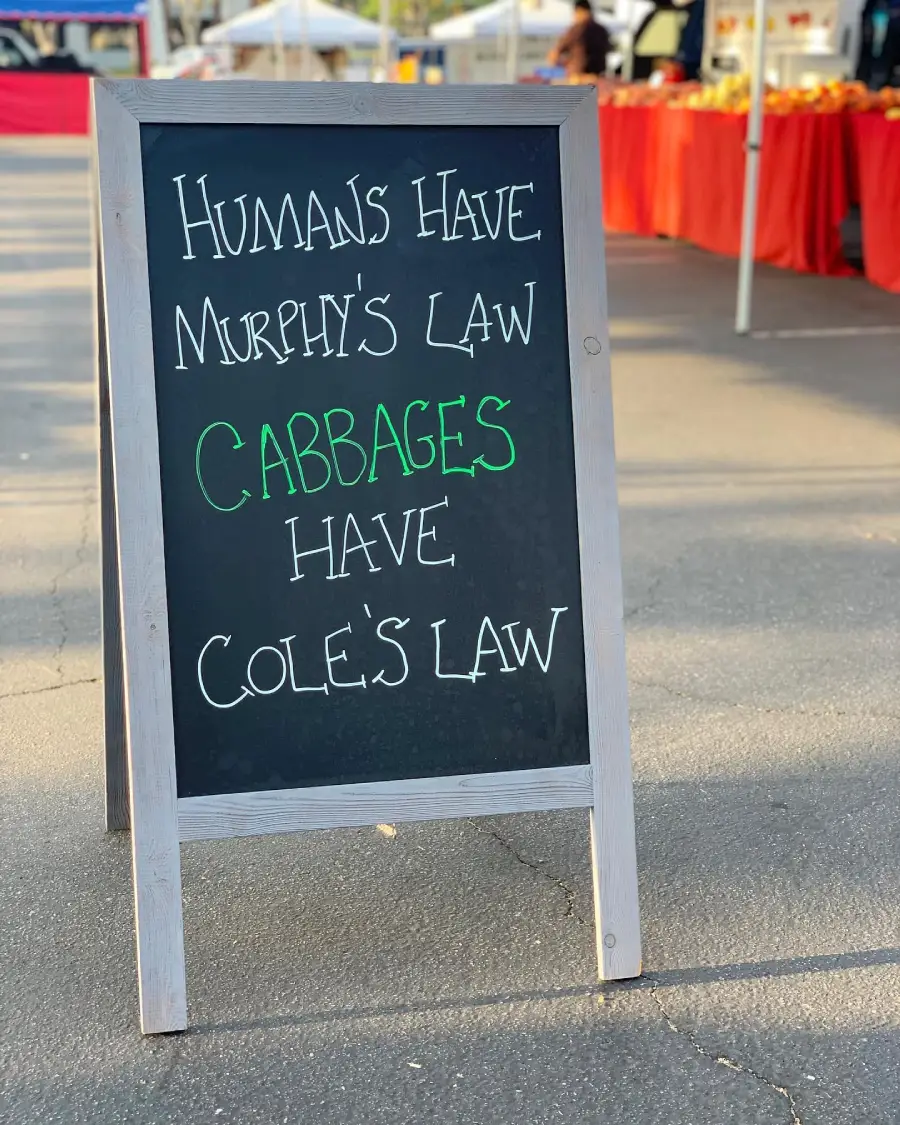 HUMANS HAVE
MURPHY'S LAW
CABBAGES
HAVE
COLE'S LAW